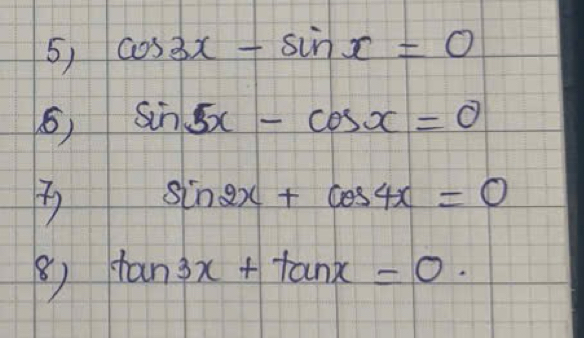 5) cos3x - sinx = 0
6) sin5x - cosx = 0
7) sin2x + cos4x = 0
8) tan3x + tanx = 0.